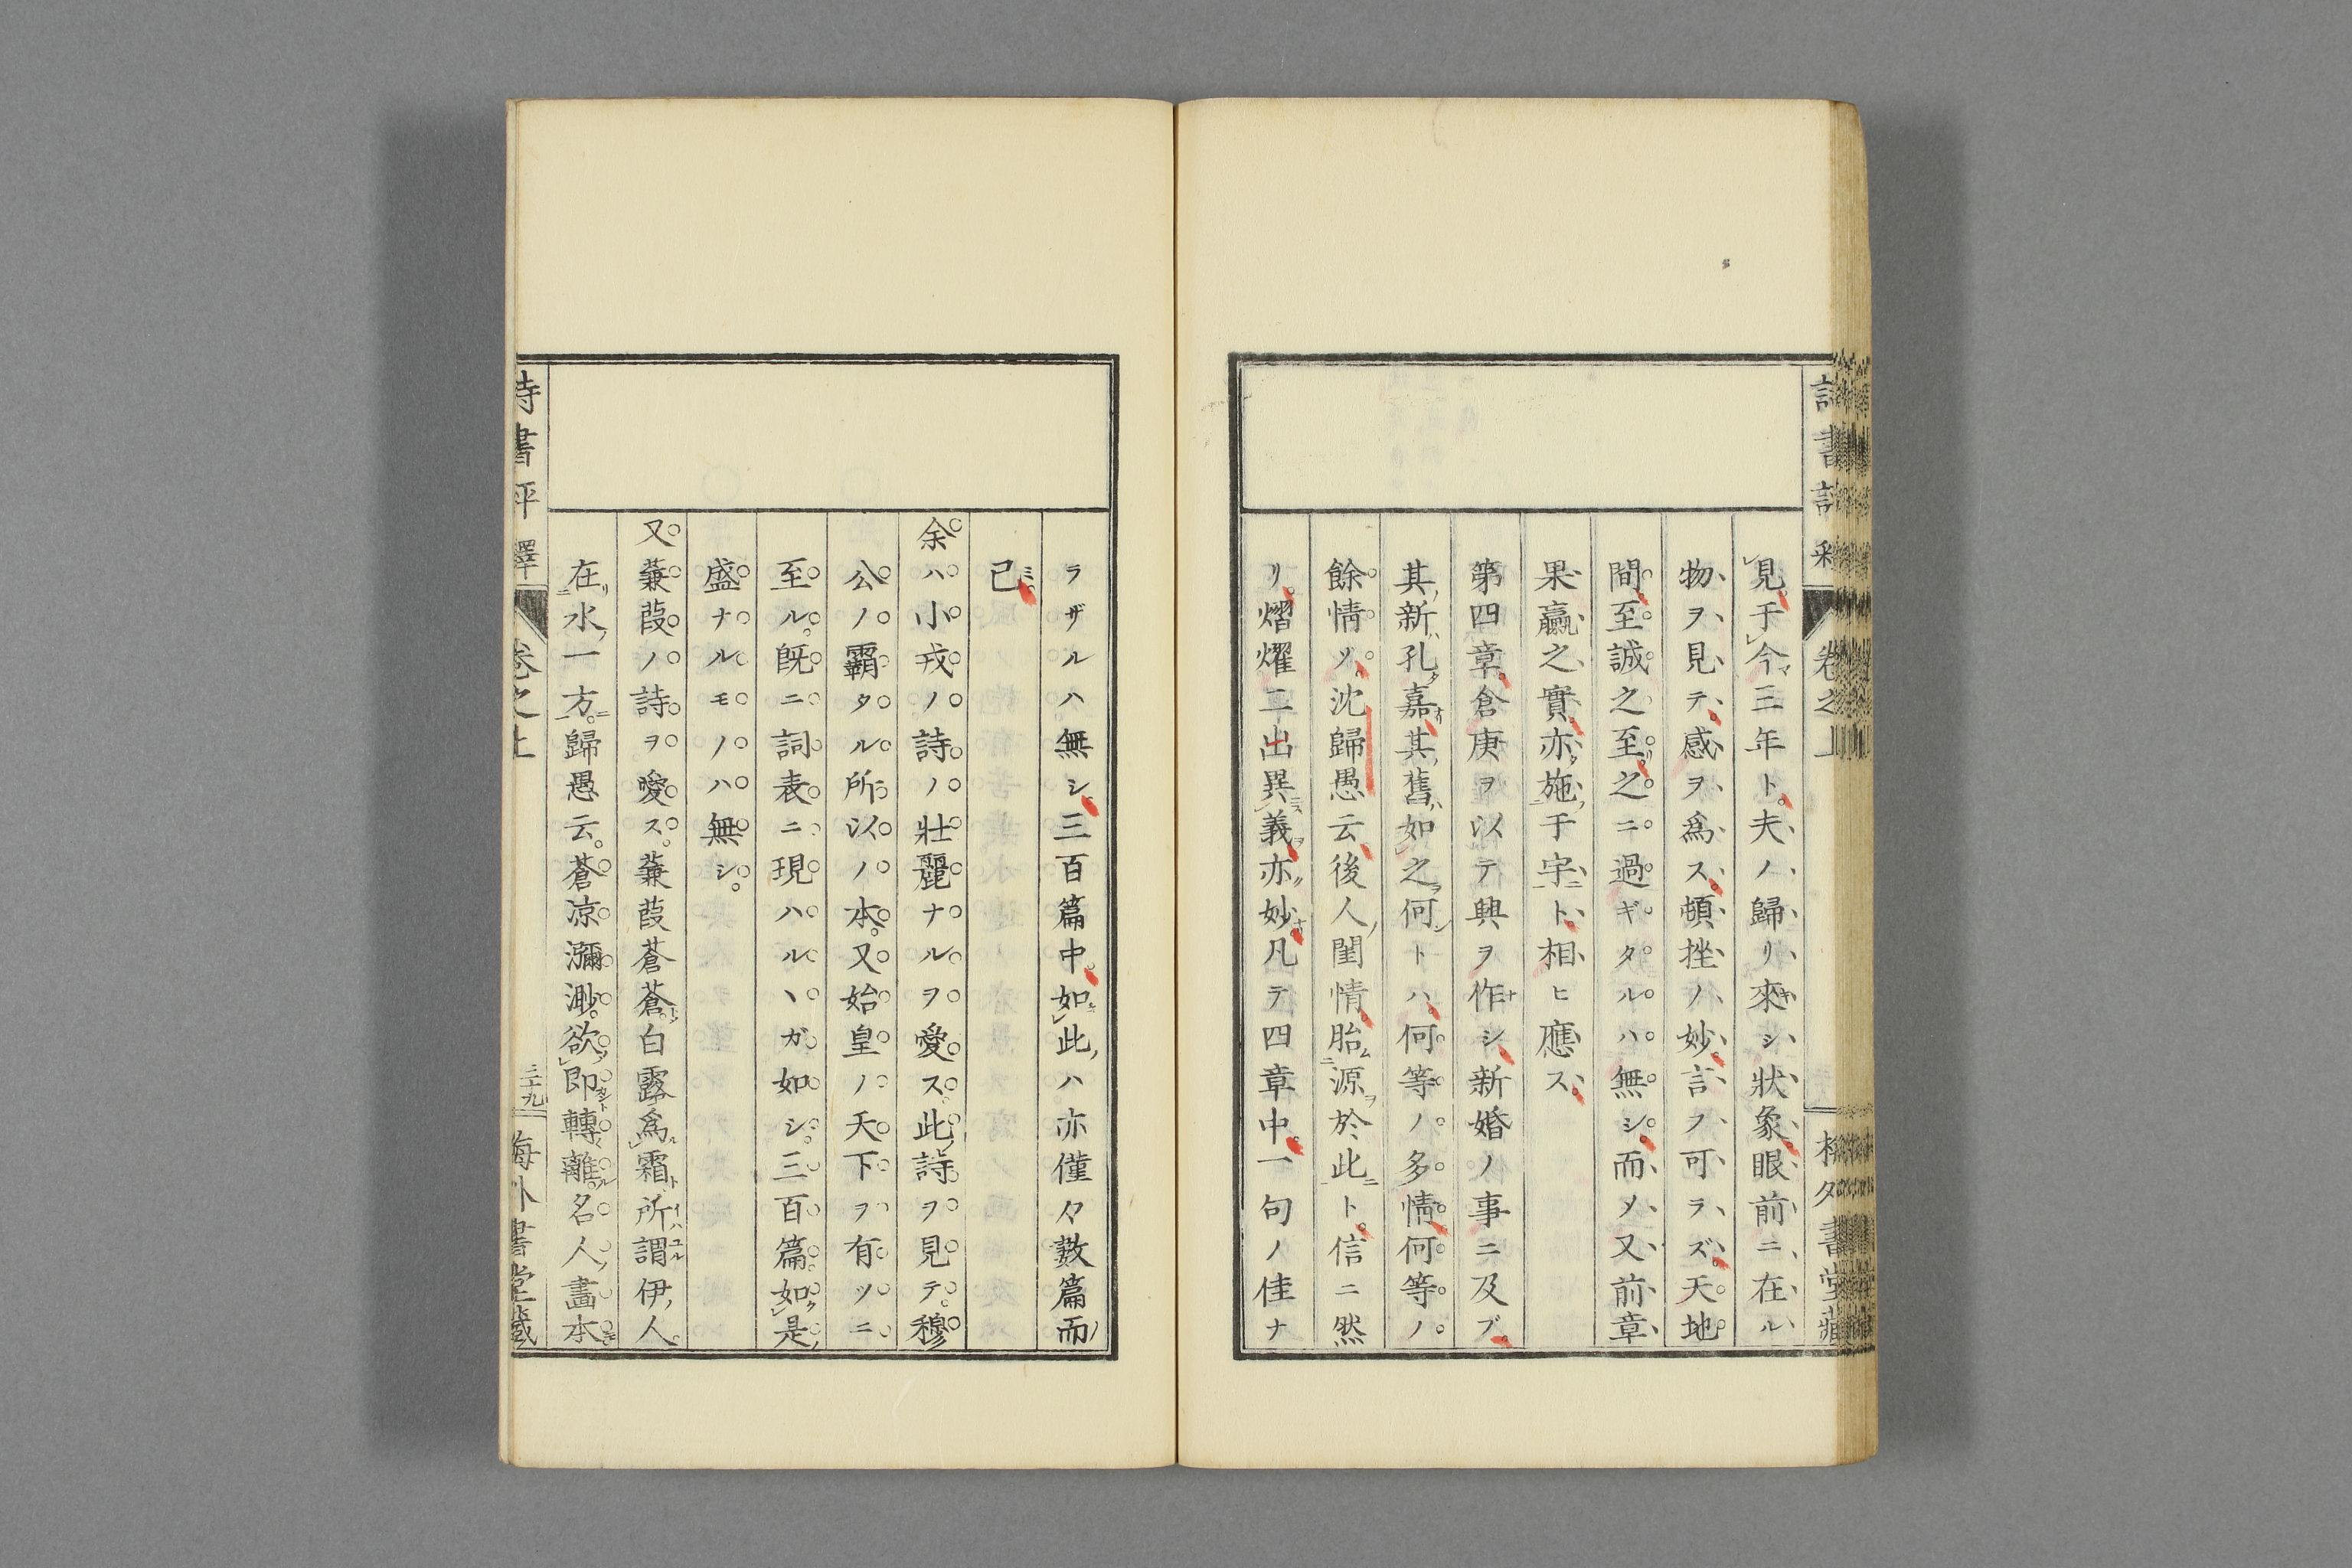 見于今三年ト。夫ノ歸リ來シ狀象眼前ニ在ル
物ヲ見テ感ヲ爲ス頓挫ノ妙言フ可ラズ天地
間至誠之至之ニ過ギタルハ無シ而メ又前章
果臝之實亦施于宇ト相ヒ應ス
第四章倉庚ヲ以テ興ヲ作シ新婚ノ事ニ及ブ
其新孔嘉其舊如之何トハ何等ノ多情何等ノ
餘情ソ沈歸愚云後人閨情胎源於此ト信ニ然
リ。熠燿二出異義亦妙凡テ四章中一句ノ佳ナ
ラザルハ無シ三百篇中如此ハ亦僅々數篇而
已
余ハ小戎ノ詩ノ壯麗ナルヲ愛ス此詩ヲ見テ。穆
公ノ霸タル所以ノ本。又始皇ノ天下ヲ有ツニ
至ル。旣ニ詞表ニ現ハルヽガ如シ。三百篇如是
盛ナルモノハ無シ。
又蒹葭ノ詩ヲ愛ス。蒹葭蒼蒼。白露爲霜所謂伊人。
在水一方。歸愚云。蒼凉瀰渺。欲卽轉離名人畵本
詩書評釋 卷之上 三十九